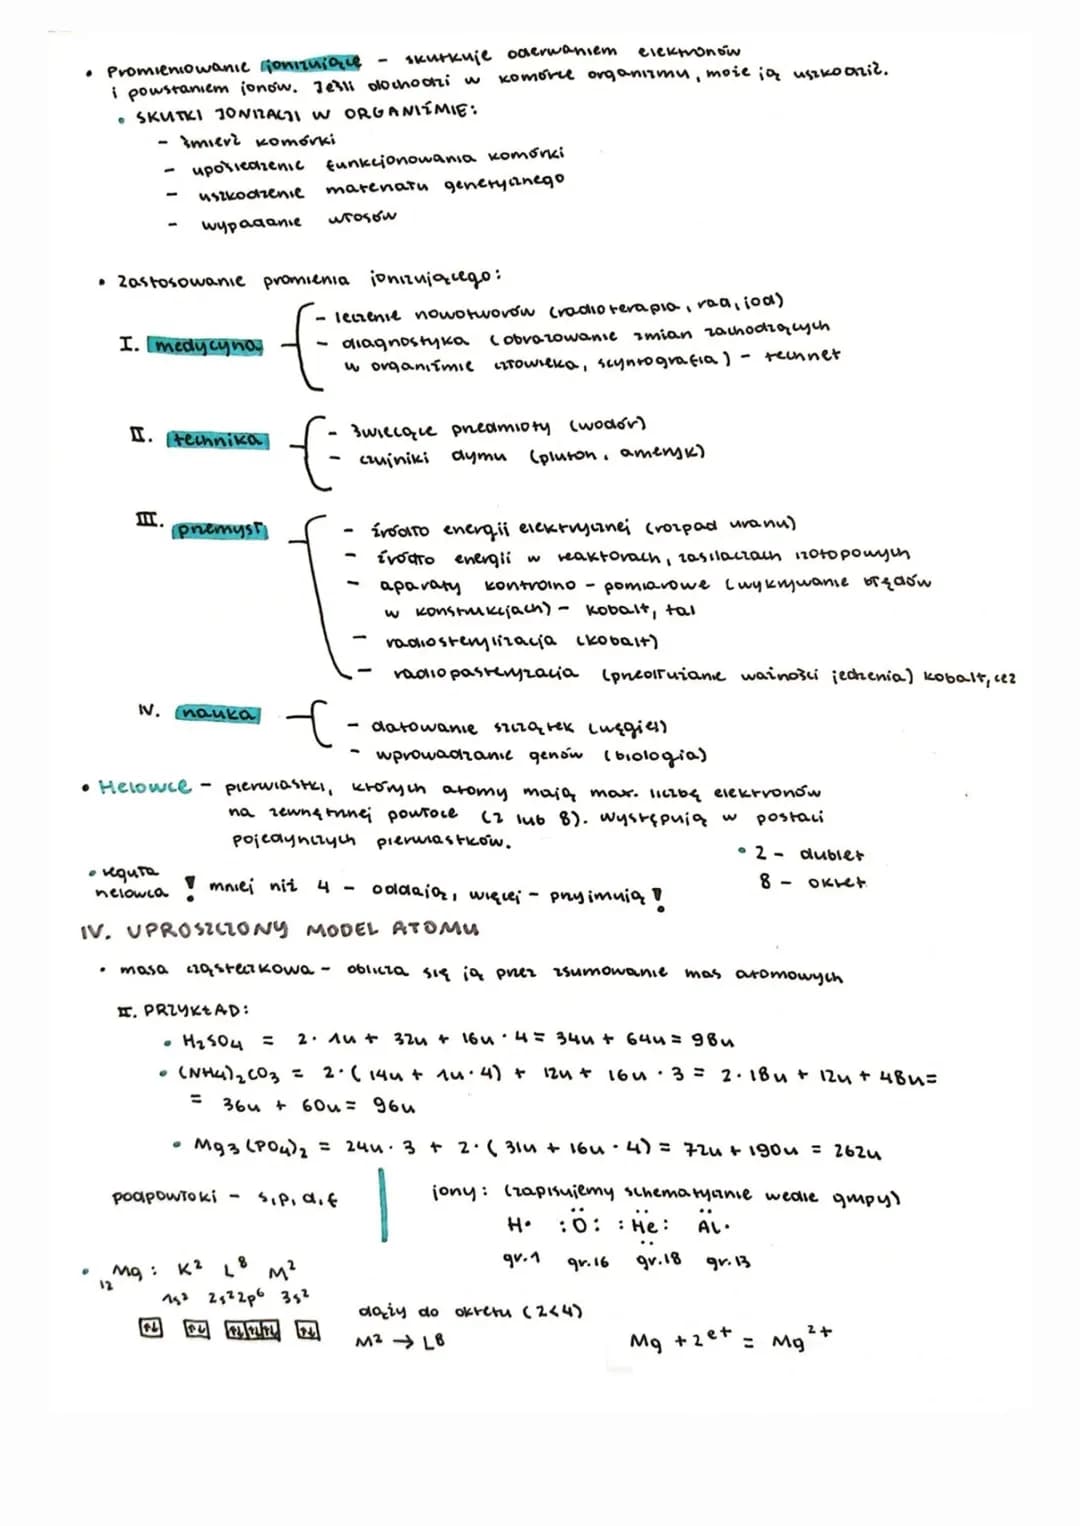 • Promieniowanie jonizujące - skutkuje oderwaniem elektronów
i powstaniem jonów. Jeśli dochodzi w komórce organizmu, może ją uszkodzić.
• SKUTKI JONIZACJI W ORGANIŹMIE:
- śmierć komórki
- upośledzenie funkcjonowania komórki
- uszkodzenie materiału genetycznego
- wypadanie włosów
• Zastosowanie promienia jonizującego:
I. medycyna
- leczenie nowotworów (radioterapia, rad, jod)
- diagnostyka (obrazowanie zmian zachodzących
w organiźmie człowieka, scyntografia) - technet
II. technika
- świecące przedmioty (wodór)
- czujniki dymu (pluton, ameryk)
III. przemysł
- źródło energii elektrycznej (rozpad uranu)
- źródło energii w reaktorach, zasilaczach izotopowych
- aparaty kontrolno - pomiarowe (wykrywanie błędów
w konstrukcjach) - kobalt, tal
- radiosterylizacja (kobalt)
- radiopasteryzacja (przedłużanie ważności jedzenia) kobalt, cez
IV. nauka
- datowanie szczątek (węgiel)
- wprowadzanie genów (biologia)
• Helowce - pierwiastki, których atomy mają max. liczbę elektronów
na zewnętrznej powłoce (2 lub 8). Występują w postaci
pojedynczych pierwiastków.
• 2 - dublet
8 - oktet
• reguła
helowca ! mniej niż 4 - oddają, więcej - przyjmują !
IV. UPROSZCZONY MODEL ATOMU
• masa cząsteczkowa - oblicza się ją przez zsumowanie mas atomowych
II. PRZYKŁAD:
• H₂SO₄ = 2· 1u + 32u + 16u · 4 = 34u + 64u = 98u
• (NH₄)₂CO₃ = 2·( 14u + 1u·4) + 12u + 16u · 3 = 2·18u + 12u + 48u=
= 36u + 60u = 96u
• Mg₃(PO₄)₂ = 24u · 3 + 2·( 31u + 16u · 4) = 72u + 190u = 262u
podpowłoki - s, p, d, f
jony: (zapisujemy schematycznie wedle grupy)
H· :Ö: :He: Al·
gr.1 gr.16 gr.18 gr.13
• ₁₂Mg: K² L⁸ M²
1s² 2s²2p⁶ 3s²
↑↓ ↑↓ ↑↓ ↑↓ ↑↓ ↑↓
dąży do oktetu (2<4)
M² → L⁸
Mg + 2e⁺ = Mg²⁺